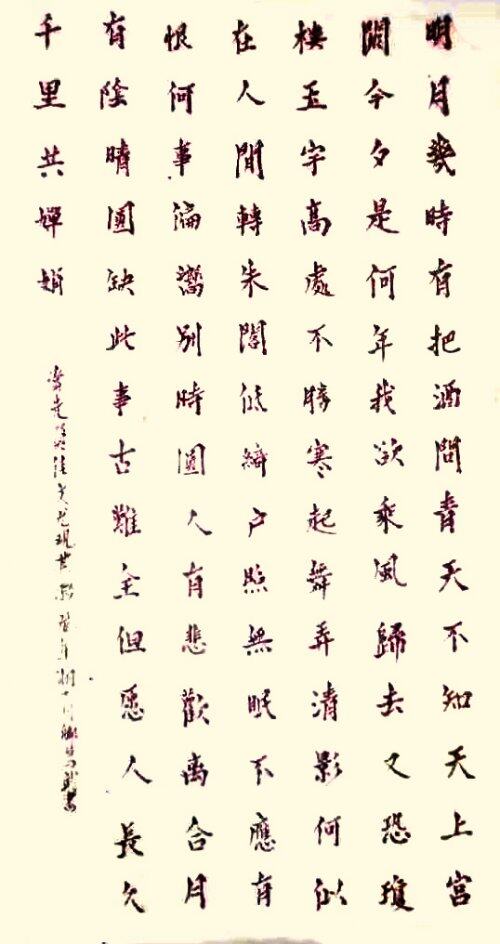 明月幾時有把酒問青天不知天上宮
闕今夕是何年我欲乘風歸去又恐瓊
樓玉宇高處不勝寒起舞弄清影何似
在人間轉朱閣低綺戶照無眠不應有
恨何事偏嚮別時圓人有悲歡离合月
有陰晴圓缺此事古難全但愿人長久
千里共嬋娟